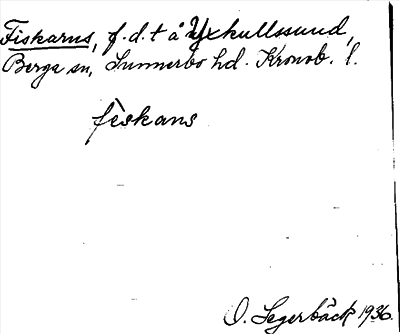 Fiskarns, f.d.t å Yxkullssund,
Berga sn, Sunnerbo hd. Kronob. l.
fiskans
O. Segerbäck 1936.